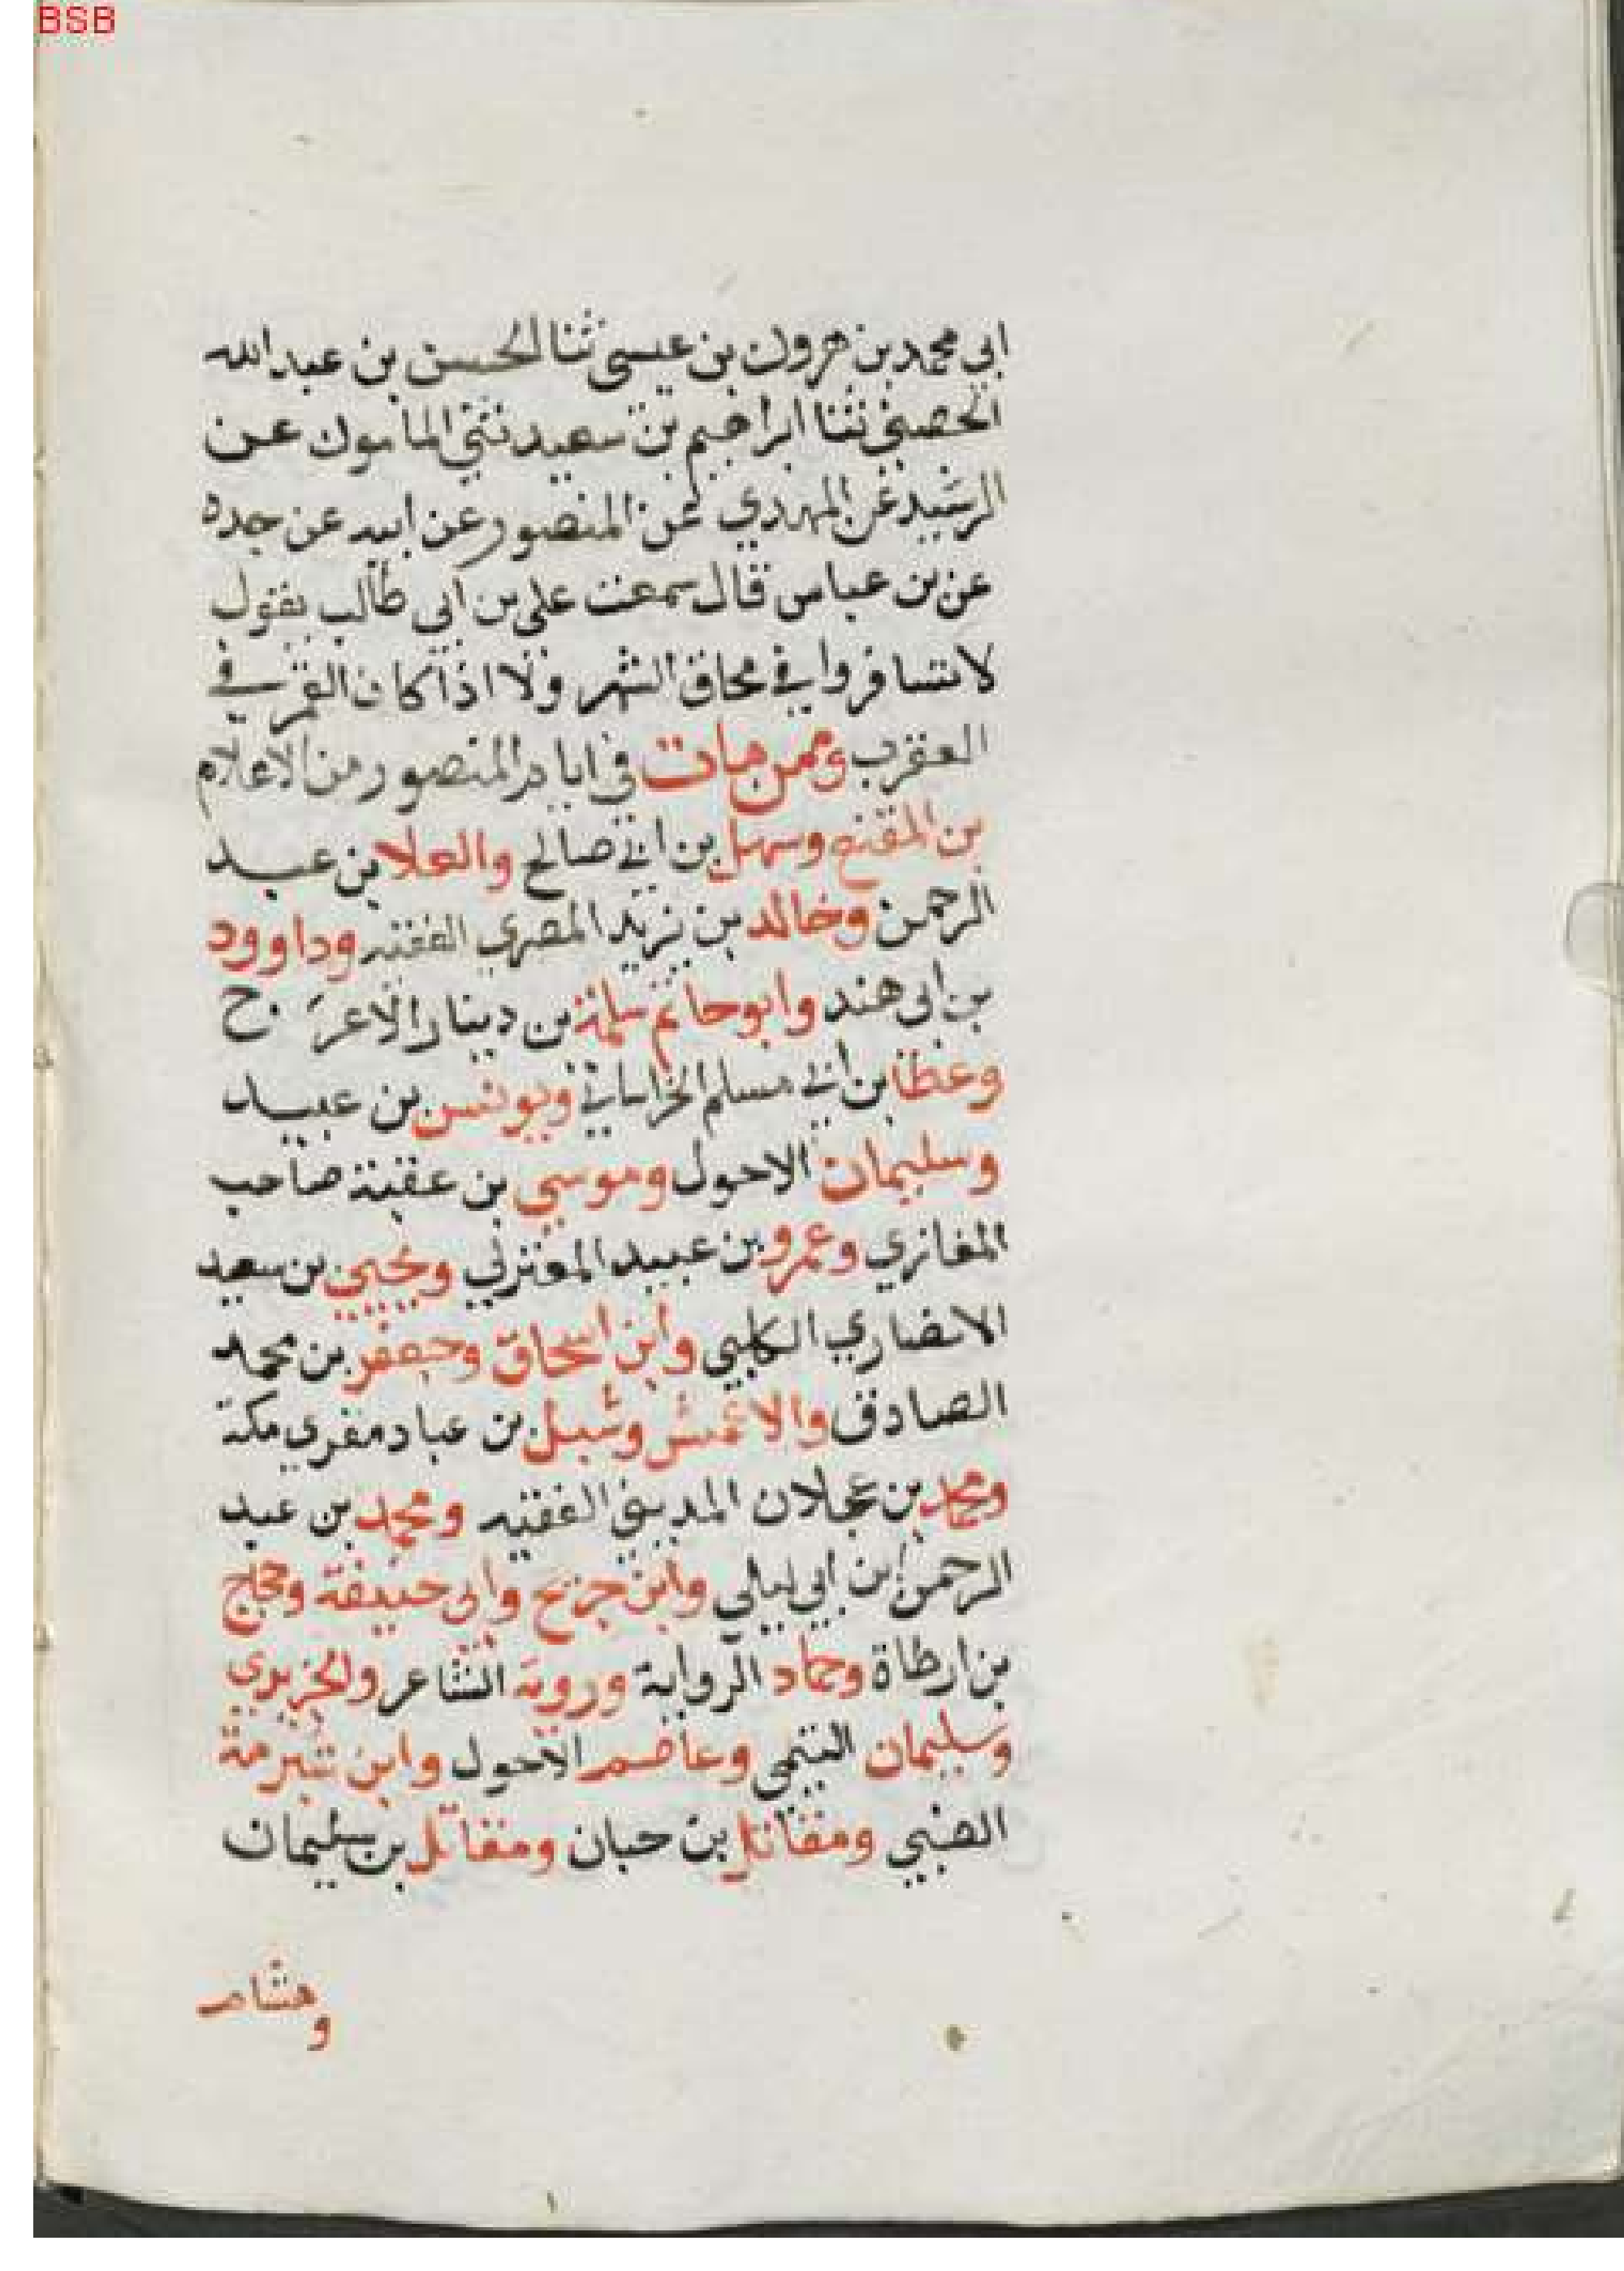 BSB
ابى محمد بن هرون بن عيسى ثنا الحسن بن عبد الله
الحصنى ثنا ابراهيم بن سعيد ثنى المامون عن
الرشيد عن المهدي عن المنصور عن ابيه عن جده
عن بن عباس قال سمعت على بن ابي طالب يقول
لا تسافروا في محاق الشهر ولا اذا كان القمر في
العقرب وممن مات فى ايام المنصور من الاعلام
بن المقنع وسهل بن ابي صالح والعلا بن عبد
الرحمن وخالد بن يزيد المصري الفقيه وداوود
بن ابى هند وابو حاتم سلمة بن دينار الاعرج
وعطا بن ابي مسلم الخراساني ويونس بن عبيد
وسليمان الاحول وموسي بن عقبة صاحب
المغازي وعمرو بن عبيد المعتزلي ويحيي بن سعيد
الانصاري الكلبي وابن اسحاق وجعفر بن محمد
الصادق والاعمش وشبل بن عباد مقري مكة
ومحمد بن عجلان المديني الفقيه ومحمد بن عبد
الرحمن بن ابي ليلي وابن جريج وابى حنيفة وحجاج
بن ارطاة وحماد الرواية وروبة الشاعر والجريري
وسليمان التيمي وعاصم الاحول وابن شبرمة
الضبي ومقاتل بن حبان ومقاتل بن سليمان
وهشام